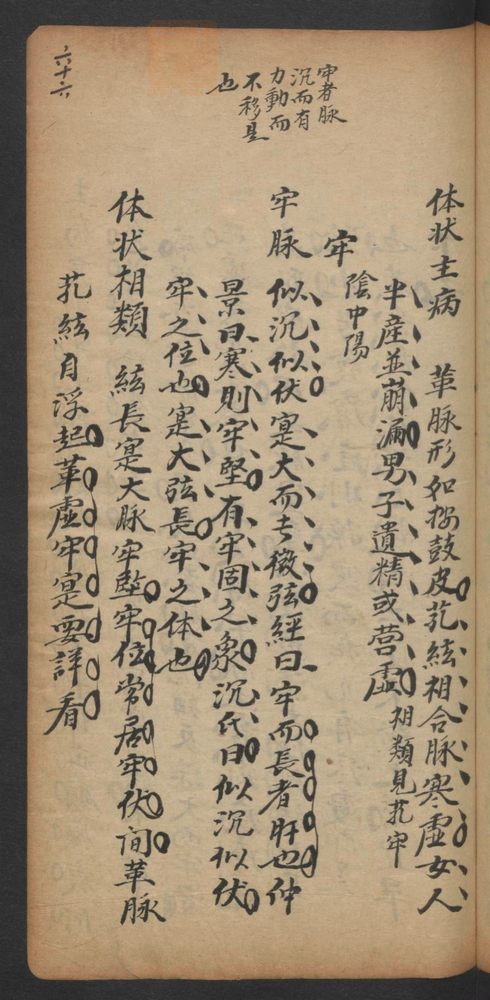 六十六
牢者脉
沉而有
力動而
不移是
也
体状主病　革脉形如按鼓皮芤絃相合脉寒虚女人
半産並崩漏男子遺精或营虚相類見芤牢
牢陰中陽
牢脉　似沉似伏寔大而長微弦經曰牢而長者肝也仲
景曰寒則牢堅有牢固之象沉氏曰似沉似伏
牢之位也寔大弦長牢之体也
体状相類　絃長寔大脉牢堅牢位常居牢伏间革脉
芤絃自浮起革虚牢寔要詳看